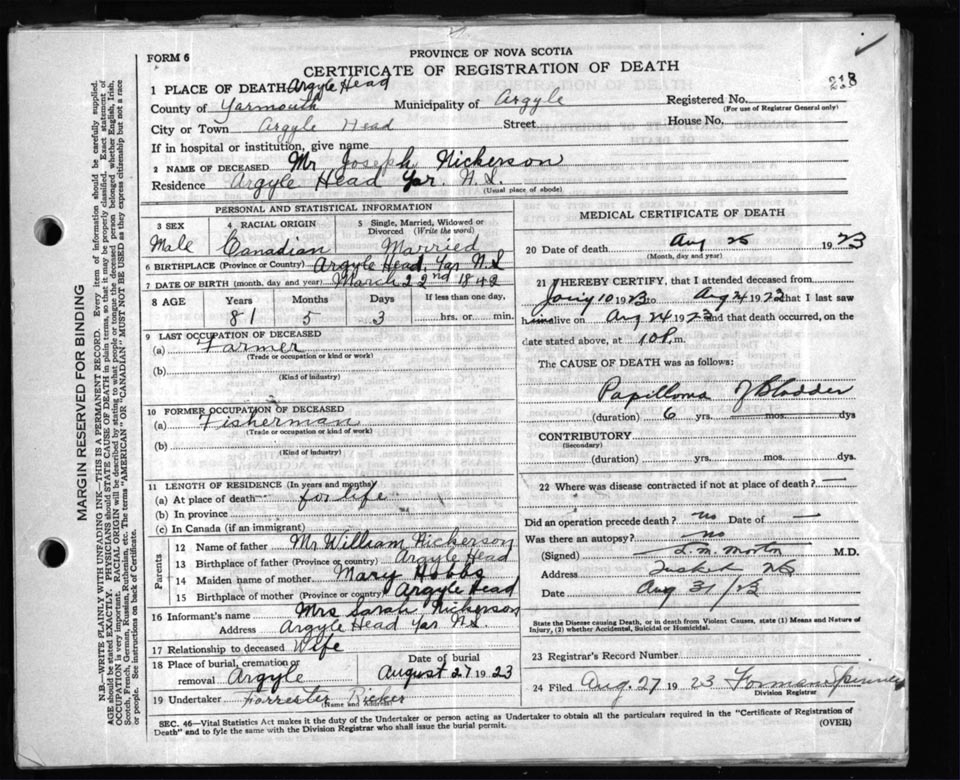 PROVINCE OF NOVA SCOTIA
FORM 6
CERTIFICATE OF REGISTRATION OF DEATH
218
1 PLACE OF DEATH Argyle Head
County of Yarmouth Municipality of Argyle Registered No.
(For use of Registrar General only)
City or Town Argyle Head Street House No.
If in hospital or institution, give name
2 NAME OF DECEASED Mr Joseph Nickerson
Residence Argyle Head Yar. N.S.
(Usual place of abode)
PERSONAL AND STATISTICAL INFORMATION
3 SEX 4 RACIAL ORIGIN 5 Single, Married, Widowed or Divorced (Write the word)
Male Canadian Married
6 BIRTHPLACE (Province or Country) Argyle Head, Yar N.S
7 DATE OF BIRTH (month, day and year) March 22nd 1842
8 AGE Years Months Days If less than one day,
81 5 3 hrs. or min.
9 LAST OCCUPATION OF DECEASED
(a) Farmer
(Trade or occupation or kind or work)
(b)
(Kind of industry)
10 FORMER OCCUPATION OF DECEASED
(a) Fisherman
(Trade or occupation or kind of work)
(b)
(Kind of industry)
11 LENGTH OF RESIDENCE (In years and months)
(a) At place of death for life
(b) In province
(c) In Canada (if an immigrant)
Parents
12 Name of father Mr William Nickerson
13 Birthplace of father (Province or country) Argyle Head
14 Maiden name of mother Mary Hobbs
15 Birthplace of mother (Province or country) Argyle Head
16 Informant's name Mrs Sarah Nickerson
Address Argyle Head Yar N.S
17 Relationship to deceased Wife
18 Place of burial, cremation or removal Argyle Date of burial August 27 1923
19 Undertaker Forrester Ricker
(Name and Address)
MEDICAL CERTIFICATE OF DEATH
20 Date of death Aug 25 1923
(Month, day and year)
21 I HEREBY CERTIFY, that I attended deceased from
10 1923 to Aug 24 1923 that I last saw
him alive on Aug 24 1923 and that death occurred, on the
date stated above, at 10 P. m.
The CAUSE OF DEATH was as follows:
Papilloma of Bladder
(duration) 6 yrs. mos. dys
CONTRIBUTORY
(Secondary)
(duration) yrs. mos. dys.
22 Where was disease contracted if not at place of death?
Did an operation precede death? no Date of
Was there an autopsy? no
(Signed) L. M. Morton M.D.
Address Tusket NS
Date Aug 31/23
State the Disease causing Death, or in death from Violent Causes, state (1) Means and Nature of
Injury, (2) whether Accidental, Suicidal or Homicidal.
23 Registrar's Record Number
24 Filed Aug. 27 1923
Division Registrar
SEC. 46—Vital Statistics Act makes it the duty of the Undertaker or person acting as Undertaker to obtain all the particulars required in the "Certificate of Registration of
Death" and to fyle the same with the Division Registrar who shall issue the burial permit. (OVER)
MARGIN RESERVED FOR BINDING
N.B.—WRITE PLAINLY WITH UNFADING INK—THIS IS A PERMANENT RECORD. Every item of information should be carefully supplied.
AGE should be stated EXACTLY. PHYSICIANS should STATE CAUSE OF DEATH in plain terms, so that it may be properly classified. Exact statement of
OCCUPATION is very important. RACIAL ORIGIN will be described by stating to what people or tongue the deceased person belonged whether English, Irish,
Scotch, French, German, Russian, Ruthenian, etc. The terms "AMERICAN" OR "CANADIAN" MUST NOT BE USED as they express citizenship but not a race
or people. See instructions on back of Certificate.